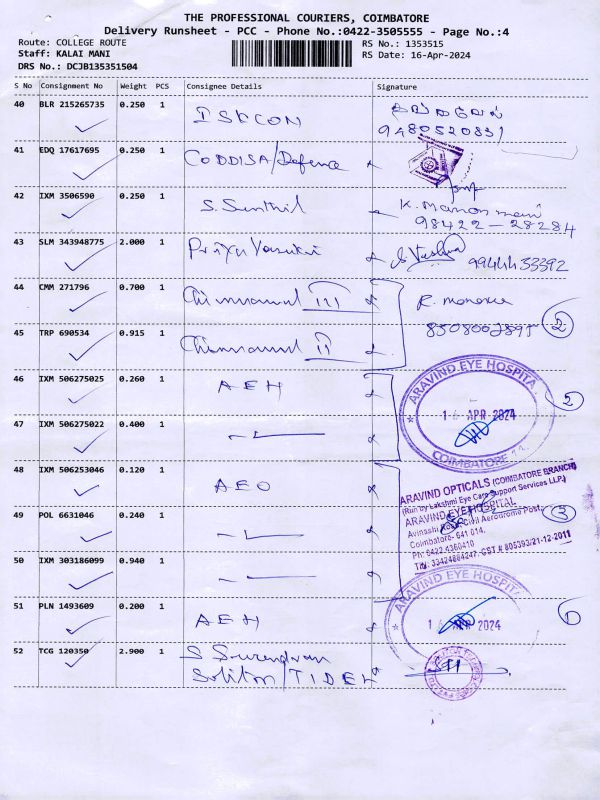 THE PROFESSIONAL COURIERS, COIMBATORE
Delivery Runsheet - PCC - Phone No.:0422-3505555 - Page No.:4
Route: COLLEGE ROUTE
RS No.: 1353515
Staff: KALAI MANI
RS Date: 16-Apr-2024
DRS No.: DCJB135351504
S No Consignment No Weight PCS Consignee Details Signature
40 BLR 215265735 0.250 1 ISKCON
9480520831
41 EDQ 17617695 0.250 1 CODDISA/Defence
42 IXM 3506590 0.250 1 S. Senthil K. Manon mani
98422-28284
43 SLM 343948775 2.000 1 Priya
9944433392
44 CMM 271796 0.700 1 III R.
45 TRP 690534 0.915 1 II 2
46 IXM 506275025 0.260 1 AEH
ARAVIND EYE HOSPITA
16 APR 2024
COIMBATORE 14.
2
47 IXM 506275022 0.400 1
48 IXM 506253046 0.120 1 AEO
ARAVIND OPTICALS (COIMBATORE BRANCH)
(Run by Lakshmi Eye Care Support Services LLP)
ARAVIND EYE HOSPITAL
Avinashi Road, Civil Aerodrome Post,
Coimbatore- 641 014.
Ph: 0422-4360410
3
49 POL 6631046 0.240 1
50 IXM 303186099 0.940 1
51 PLN 1493609 0.200 1 AEH
ARAVIND EYE HOSPITA
16 APR 2024
1
52 TCG 120350 2.900 1 S Surendran
Soliton/TIDEL